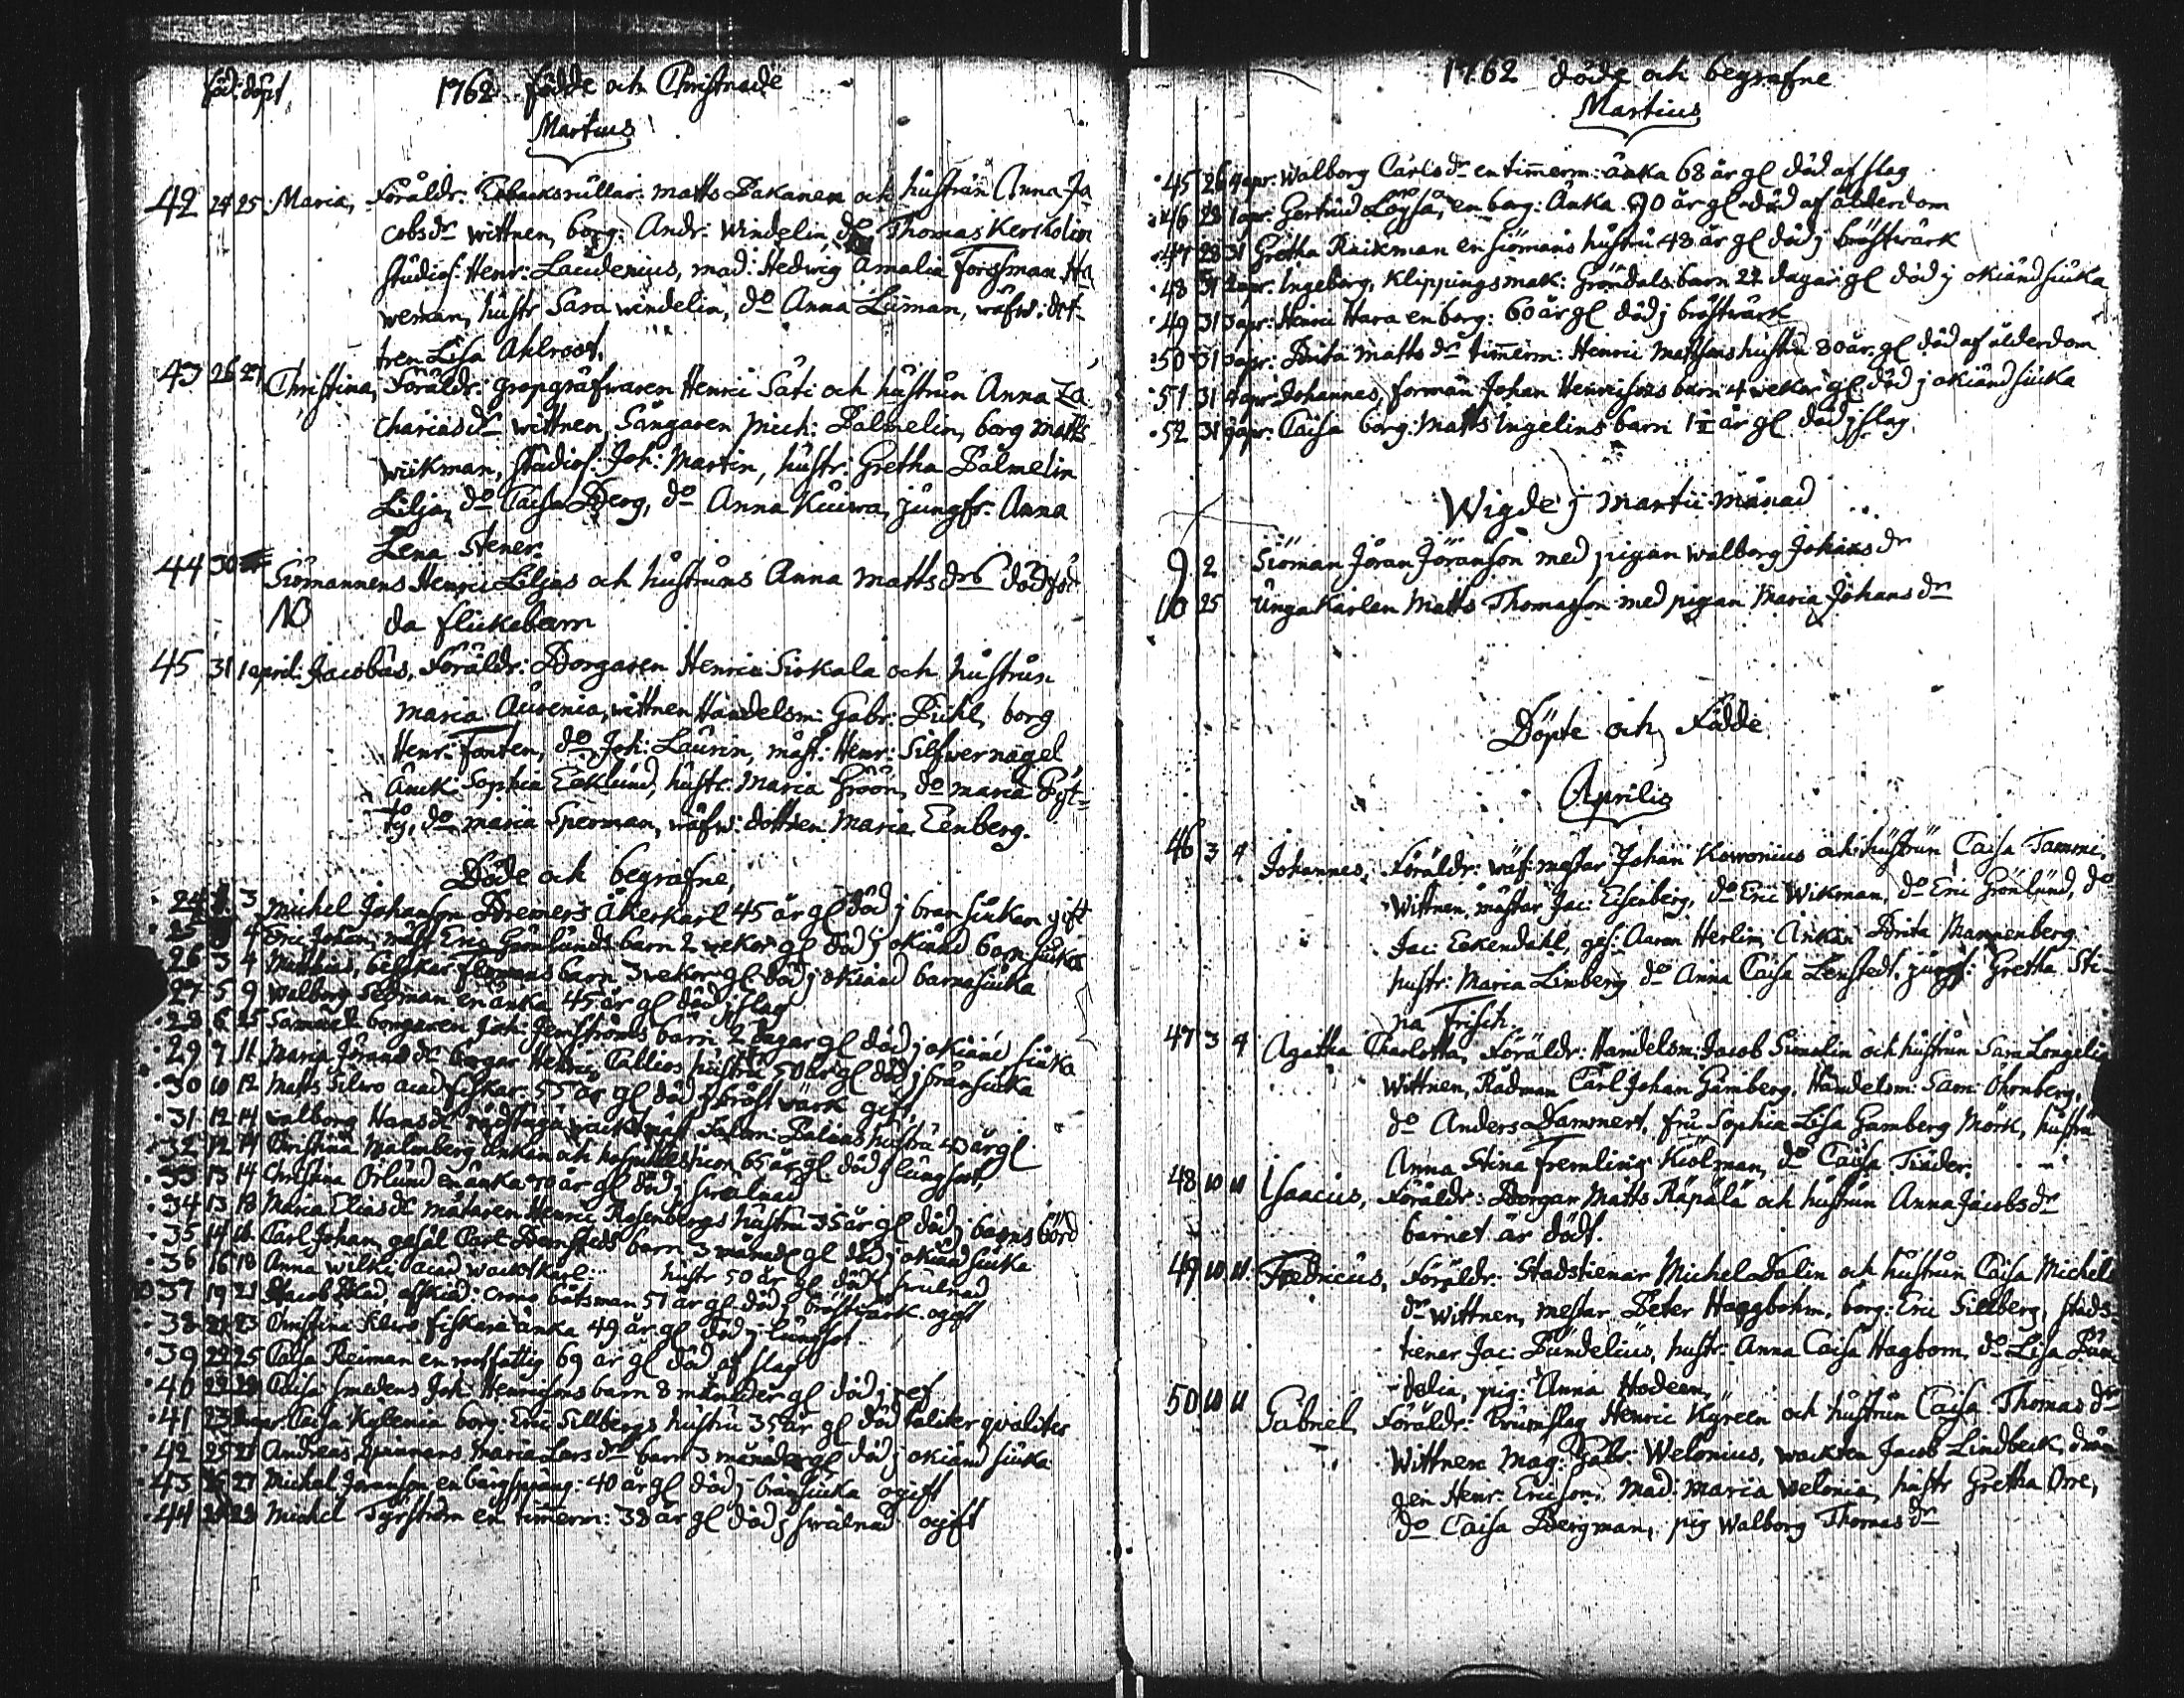 föd: döpt 1762 Födde och Christnade
Martius
42 24 25 Maria, Föräldr: Tobacksrullar: Matts Pakanen och hustrun Anna Ja
cobsdr wittnen, borg: Andr: Windelin, do Thomas Kerckolin
studios: Henr: Laudenius, mad: Hedwig Amalia Forssman Ha
weman, hustr Sara windelin, do Anna Luman, rådw: dot-
tren Lisa Ahlroos.
43 26 27 Christina, Föräldr: gropgräfwaren Henric Sati och hustrun Anna Za
chariasdr wittnen, Sångaren Mich: Palmelin, borg Matts
Wikman, studios: Joh: Martin, hustr: Gretha Palmelin
Lilja, do Caisa Berg, do Anna Kuiwa, jungfr. Anna
Lena Stener.
44 30 Siömannens Henric Liljas och hustruns Anna Mattsdrs dödföd
NB da flickebarn
45 31 1 april: Jacobus, Föräldr: Borgaren Henric Sirkala och hustrun
Maria Aurenia, wittnen Handelsm: Gabr: Pihl, borg
Henr: Tonten, do Joh: Laurin, mäst: Henr: Silfwernagel,
Änck: Sophia Ecklund, hustr: Maria Gröön, do Maria Pyt-
ty, do Maria Sperman, rådw: dottren Maria Eenberg.
Döde och begrafne,
24 3 Michel Johanson Bremers åkerkarl 45 år gl död j bränsiukan gift
25 4 Eric Johan, mäst Eric Grönlunds barn 2 wekor gl död j okiänd barnsiuka
26 3 4 Matthias, besökar barn 3 wekor gl död j okiänd barnasiuka
27 5 9 Walborg Sedman en änka 45 år gl död j slag
28 6 25 Samuel borgaren Joh: barn 2 dagar gl död j okiänd siuka
29 7 11 Maria Jöransdr borgar Henric Callios hustru 50 år gl död j bränsiuka
30 10 12 Matts Silwo acad fiskar 55 år gl död j bröstwärk gift,
31 12 14 Walborg Hansdr hustru 40 år gl
32 12 14 Christina Malmberg änkan och 65 år gl död j lungsot,
33 13 14 Christina Orlund en änka 70 år gl död j swulnad
34 13 18 Maria Eliasdr mätaren Henric Rosenbergs hustru 35 år gl död j barnsbörd
35 14 Carl Johan, gesäl Carl barn 3 månadr gl död j okiänd siuka
36 16 18 Anna Wilki acad wacktkarl: hustr 50 år gl död j swulnad
37 19 21 Jacob Blad, afskied: crono båtsman 51 år gl död j bröstwärk ogift
38 21 23 Christina Silwo fiskare änka 49 år gl död j lungsot
39 22 25 Caisa Reiman en rootfattig 69 år gl död af slag
40 Caisa smedens Joh: Henricsons barn 8 månader gl död j ref
41 23 apr. Caisa Kylenia borg: Eric Sillbergs hustru 35 år gl död taliter qvaliter
42 25 27 Andreas, spinners Maria Larsdr barn 3 månader gl död j okiänd siuka
43 26 27 Michel Jöranson, en 40 år gl död j bränsiuka ogift
44 28 Michel Tyrström en timmerm: 38 år gl död j swulnad ogift
1762 döde och begrafne
Martius
45 26 4 apr: Walborg Carlsdr en timmerm: änka 68 år gl död af slag
46 28 1 apr: Gertrud Löysä, en borg: Änka 90 år gl död af ålderdom
47 28 31 Gretha Raikman en siömans hustru 48 år gl död j bröstwärk
48 31 2 apr: Ingeborg, Klippingsmak: Gröndals barn 22 dagar gl död j okiänd siuka
49 31 3 apr: Henric Hara en borg: 60 år gl död j bröstwärk
50 31 3 apr: Brita Mattsdr timmerm: Henric Matssons hustru 80 år gl död af ålderdom
51 31 4 apr: Johannes, forman Johan Henricsons barn 4 wekor gl död j okiänd siuka
52 31 9 apr: Caisa borg: Matts Ingelins barn 1½ år gl död j slag
Wigde j Martii månad
9 2 Siöman Jöran Jöranson med pigan Walborg Johansdr
10 25 Unga Karlen Matts Thomasson med pigan Maria Johansdr
Döpte och Födde
Aprilis
46 3 4 Johannes, Föräldr: wäf: mestar Johan Kowonius och hustrun Caisa Tammi.
Wittnen, mästar Jac: Eisenberg, do Eric Wikman, do Eric Grönlund, do
Jac: Eekendahl, ges: Aaron Herlin, Änkan Brita Mannenberg
hustr: Maria Limberg do Anna Caisa Lenstedt, jungf: Gretha Sti-
na Frisch.
47 3 4 Agatha Charlotta, Föräldr: Handelsm: Jacob Simolin och hustrun Sara Longelia
Wittnen, Rådman Carl Johan Gamberg, Handelsm: Sam: Öhrnberg,
do Anders Dammert, fru Sophia Lisa Gamberg Mörk, hustru
Anna Stina Fremling Kiölman, do Caisa Tinder.
48 10 11 Isaacius, Föräldr: Borgar Matts Räpälä och hustrun Anna Jacobsdr
barnet är dödt.
49 10 11 Fredricus, Föräldr: Stadstienar Michel Dalin och hustrun Caisa Michels
dr wittnen, mestar Peter Haggbohm, borg: Eric Sillberg, stads-
tienar Jac: Pundelius, hustr: Anna Caisa Hagbom, do Lisa Pun-
delia, pig: Anna Hodeen,
50 10 11 Gabriel Föräldr: Trumslag Henric Kyreen och hustrun Caisa Thomasdr
Wittnen Mag: Gabr: Welonius, wackten Jacob Lindbeck, drän
gen Henr: Ericson, Mad: Maria Welonia, hustr Gretha Orre,
do Caisa Bergman, pig Walborg Thomasdr